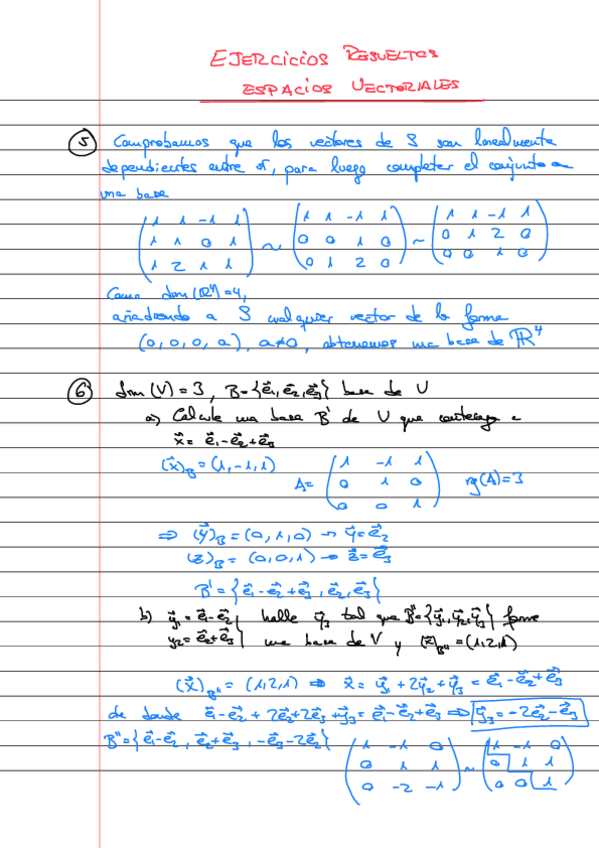 EJERCICIOS RESUELTOS
ESPACIOS VECTORIALES
5 Comprobamos que los vectores de S son linealmente
dependientes entre sí, para luego completar el conjunto a
una base
( 1 1 -1 1 ) ( 1 1 -1 1 ) ( 1 1 -1 1 )
( 1 1 0 1 ) ~ ( 0 0 1 0 ) ~ ( 0 1 2 0 )
( 1 2 1 1 ) ( 0 1 2 0 ) ( 0 0 1 0 )
Como dim(ℝ⁴)=4,
añadiendo a S cualquier vector de la forma
(0,0,0,a), a≠0, obtenemos una base de ℝ⁴
6 dim(V)=3, B={e⃗₁,e⃗₂,e⃗₃} base de V
a) Calcule una base B' de V que contenga a
x⃗ = e⃗₁-e⃗₂+e⃗₃
(x⃗)_B = (1,-1,1)
A = ( 1 -1 1 )
( 0 1 0 ) rg(A)=3
( 0 0 1 )
⇒ (y⃗)_B = (0,1,0) → y⃗=e⃗₂
(z⃗)_B = (0,0,1) → z⃗=e⃗₃
B'={e⃗₁-e⃗₂+e⃗₃, e⃗₂, e⃗₃}
b) y⃗₁=e⃗₁-e⃗₂ } halle y⃗₃ tal que B''={y⃗₁,y⃗₂,y⃗₃} forme
y₂=e⃗₂+e⃗₃ } una base de V y (x⃗)_B''=(1,2,1)
(x⃗)_B'' = (1,2,1) ⇒ x⃗ = y⃗₁+2y⃗₂+y⃗₃ = e⃗₁-e⃗₂+e⃗₃
de donde e⃗₁-e⃗₂+2e⃗₂+2e⃗₃+y⃗₃=e⃗₁-e⃗₂+e⃗₃ ⇒ y⃗₃=-2e⃗₂-e⃗₃
B''={e⃗₁-e⃗₂, e⃗₂+e⃗₃, -e⃗₃-2e⃗₂}
( 1 -1 0 ) ( 1 -1 0 )
( 0 1 1 ) ~ ( 0 1 1 )
( 0 -2 -1 ) ( 0 0 1 )